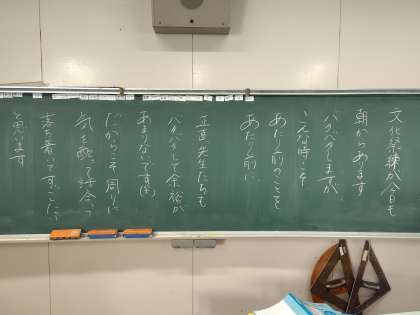 文化祭練が今日も
朝からあります
バタバタしますが
こんな時こそ
あたり前のことを
あたり前に。
正直、先生たちも
バタバタして余裕が
あまりないです(笑)
だからこそ周りに
気を配って声を
落ち着いてすごしたい
と思います